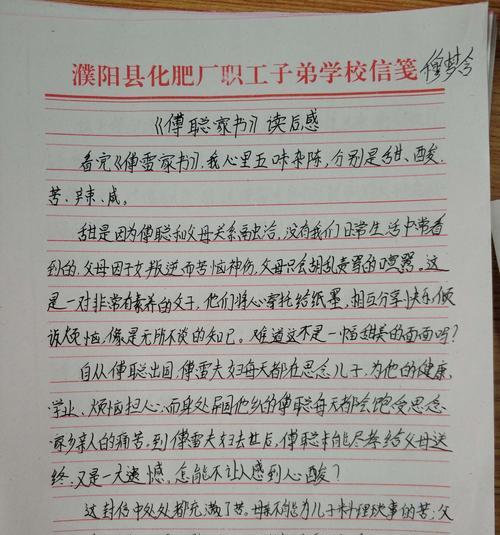 濮阳县化肥厂职工子弟学校信笺
《傅聪家书》读后感
看完《傅雷家书》，我心里五味杂陈，分别是甜、酸、
苦、辣、咸。
甜是因为傅聪和父母关系融洽，没有我们日常生活中常看
到的，父母因子女叛逆而苦恼神伤，父母只会胡乱责骂的喧嚣。这
是一对非常有素养的父子，他们将心寄托给纸墨，相互分享快乐，倾
诉烦恼，像是无所不谈的知己。难道这不是一幅甜美的画面吗？
自从傅聪出国，傅雷夫妇每天都在思念儿子，为他的健康、
学业、烦恼担心，而身处异国他乡的傅聪每天都会饱受思念
家乡亲人的痛苦，到傅雷夫妇去世后，傅聪未能尽孝给父母送
终，又是一大遗憾，怎能不让人感到心酸？
这封信中处处都充满了苦。母亲不能为儿子料理琐事的苦，父